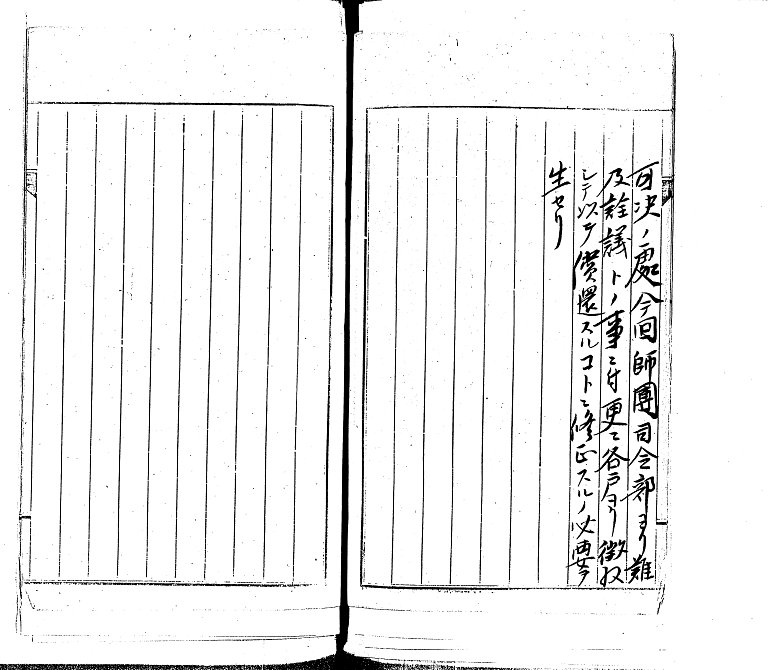 可決ノ處今回師團司令部ヨリ難
及詮議トノ事ニ付更ニ各戸ヨリ徴収
シテ以テ償還スルコトニ修正スルノ必要ヲ
生セリ